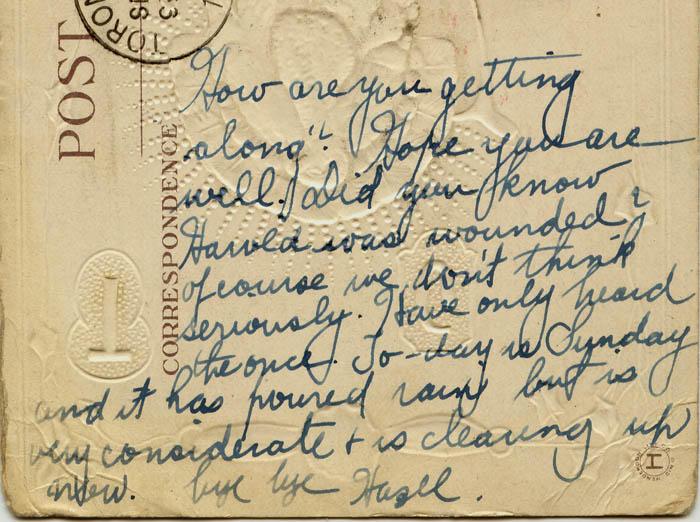 TORON
POST
CORRESPONDENCE
How are you getting
along"? Hope you are
well. Did you know
Harold was wounded?
of course we don't think
seriously. Have only heard
the once. To-day is Sunday
and it has poured rain but is
very considerate + is clearing up
now. bye bye Hazel.
H